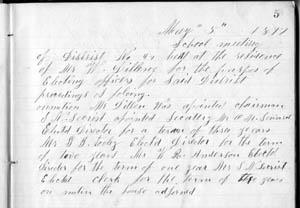 5
May 5th 1877
School meeting
of District No. 42 held at the residence
of Mr W. Dillen for the purpos of
Electing officers for Said District
proceedings as foloing
on motion Mr Dillen was apointed chairman
S. M. Secrist apointed Secretary Mr
Elected Director for a term of three years
Mr Elected Director for the term
of two years Mr Anderson Elected
Director for the term of one year Mr S M Secrist
Elected clerk for the term of years
on motion the house adjorned